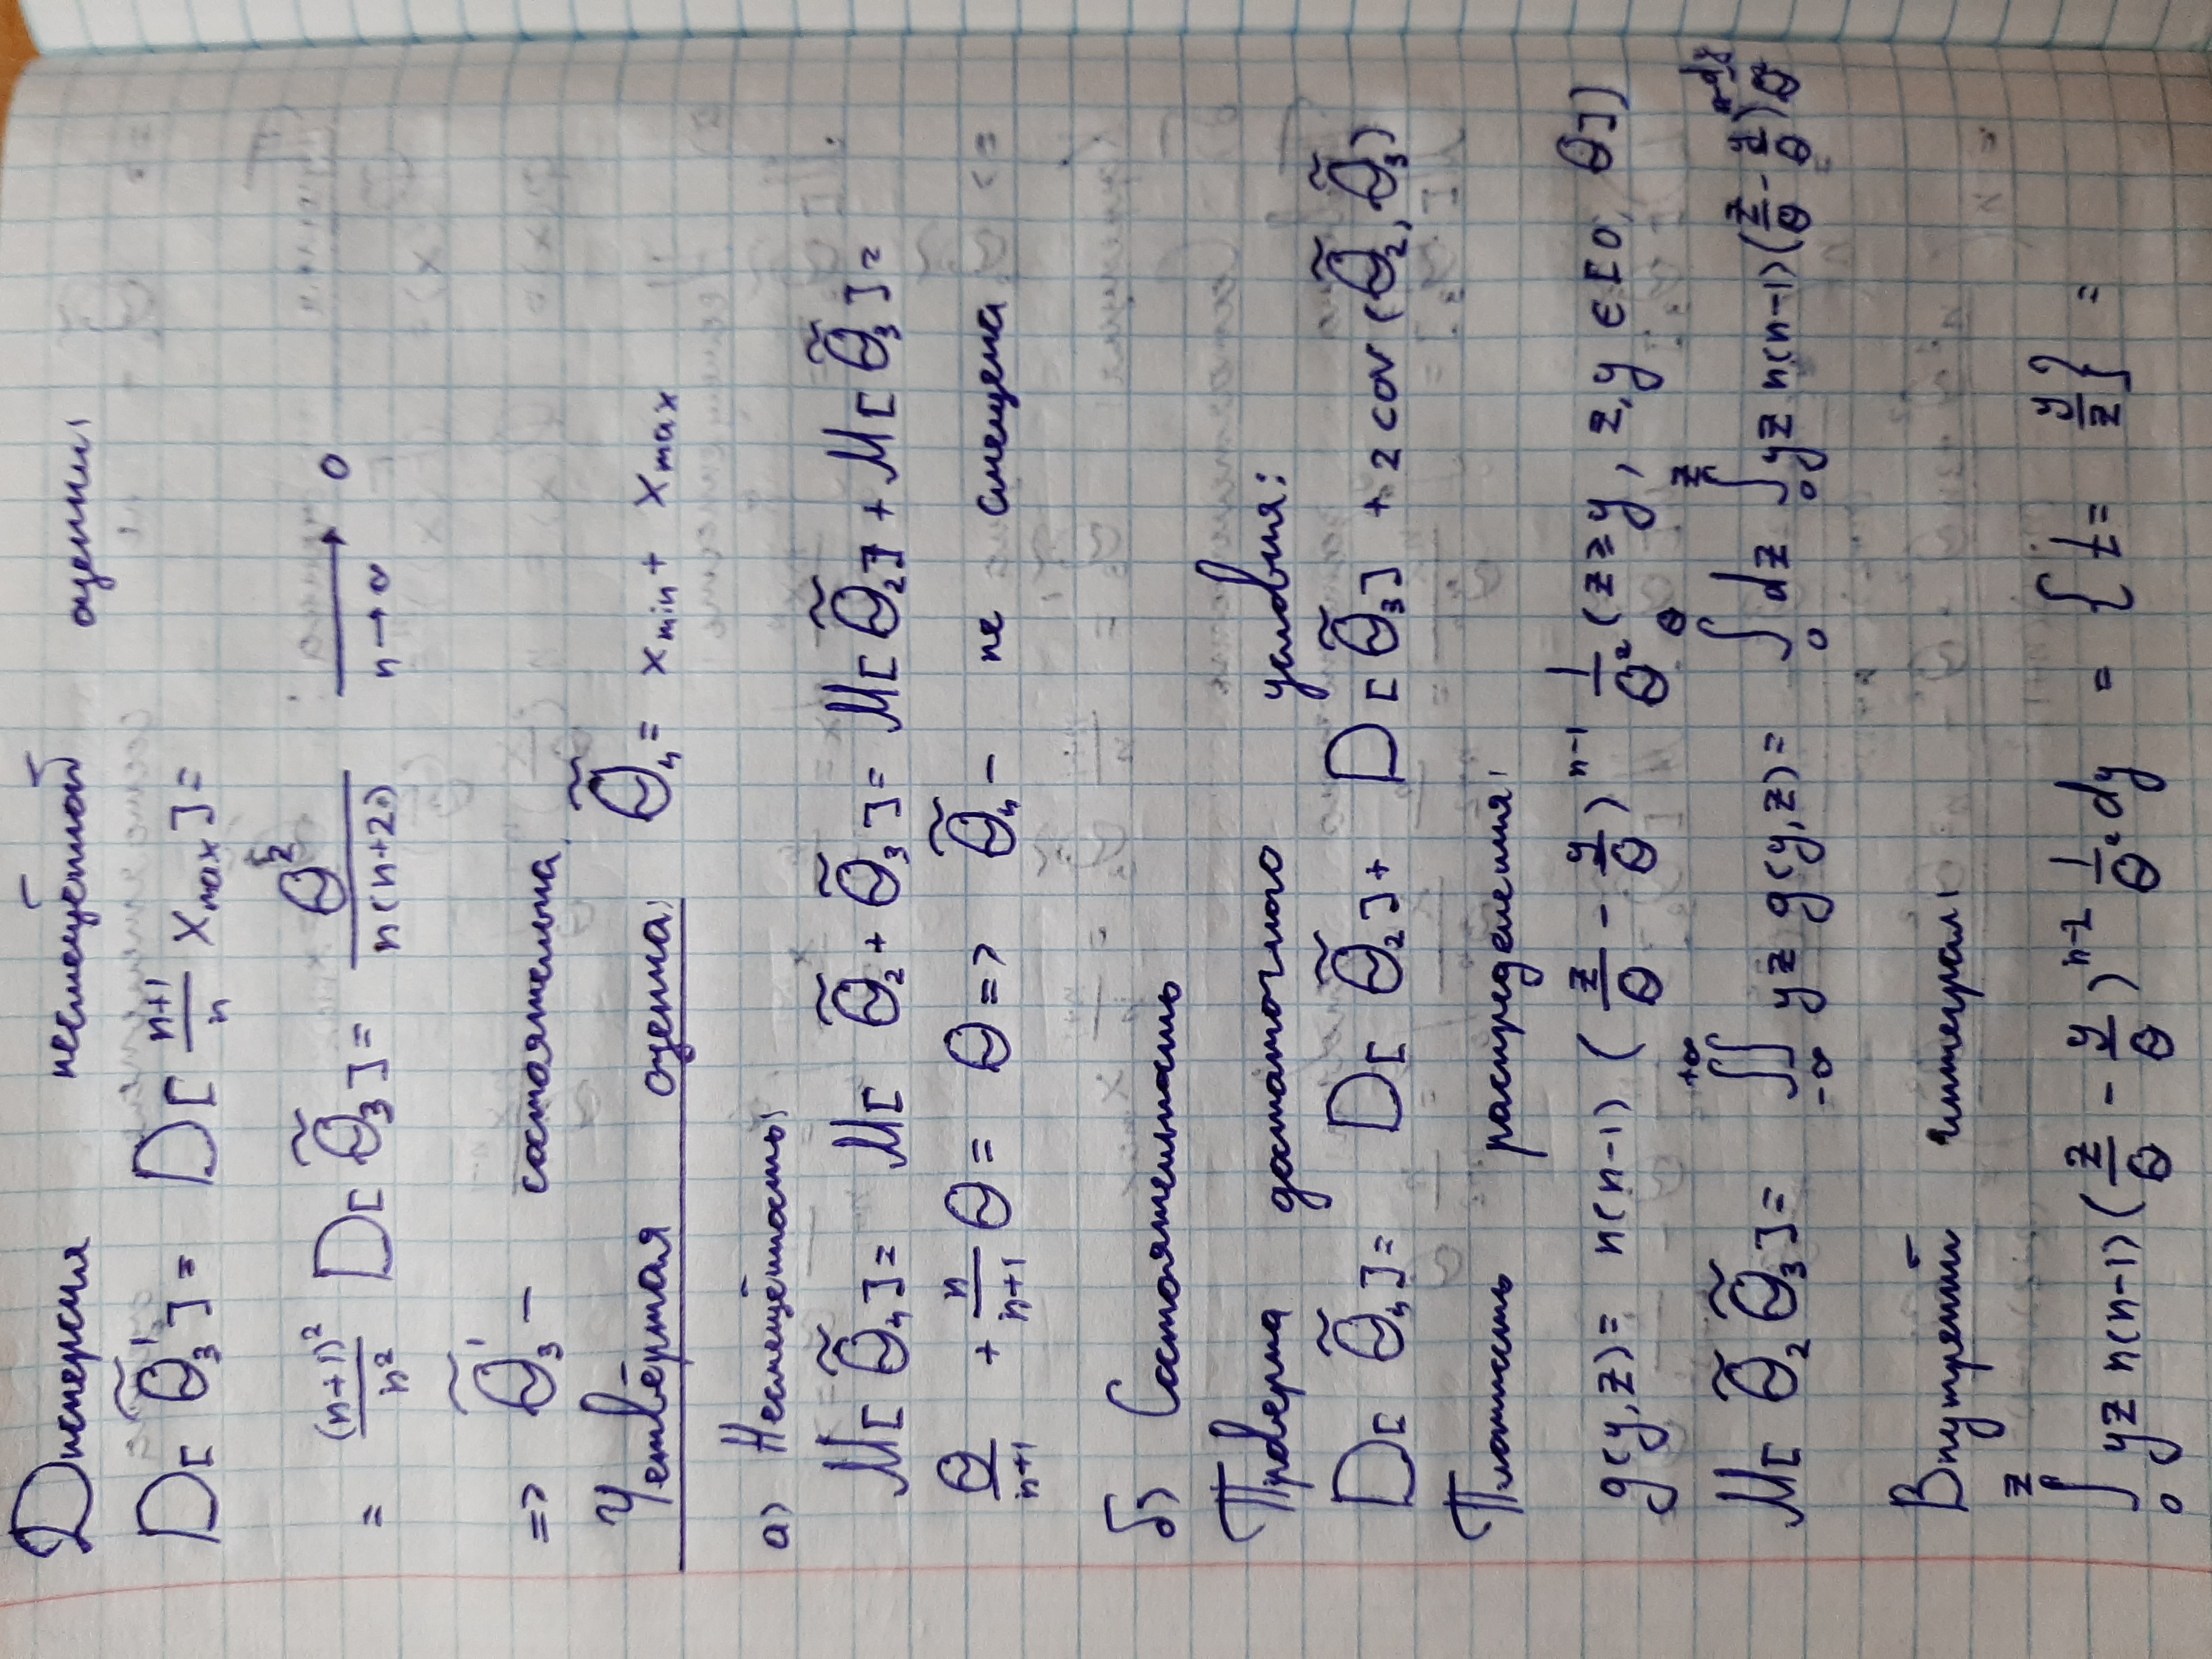 Дисперсия несмещённой оценки:
D[θ̃₃'] = D[(n+1)/n x_max] =
= (n+1)²/n² D[θ̃₃] = θ²/(n(n+2)) ⟶ 0 (n→∞)
=> θ̃₃' – состоятельна
Четвёртая оценка: θ̃₄ = x_min + x_max
а) Несмещённость:
M[θ̃₄] = M[θ̃₂ + θ̃₃] = M[θ̃₂] + M[θ̃₃] =
θ/(n+1) + n/(n+1) θ = θ => θ̃₄ – не смещена
б) Состоятельность
Проверка достаточного условия:
D[θ̃₄] = D[θ̃₂] + D[θ̃₃] + 2cov(θ̃₂, θ̃₃)
Плотность распределения:
g(y,z) = n(n-1) (z/θ - y/θ)^(n-1) 1/θ² (z≥y, z,y ∈ [0; θ])
M[θ̃₂ θ̃₃] = ∬_{-∞}^{+∞} yz g(y,z) = ∫₀^θ dz ∫₀^z yz n(n-1) (z/θ - y/θ) dy/θ² =
Внутренний интеграл:
∫₀^z yz n(n-1) (z/θ - y/θ)^(n-2) 1/θ² dy = {t = y/z} =